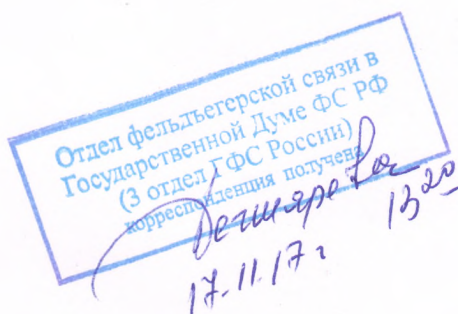 Отдел фельдъегерской связи в
Государственной Думе ФС РФ
(3 отдел ГФС России)
корреспонденция получена
Дегтярева
17.11.17г 13 20